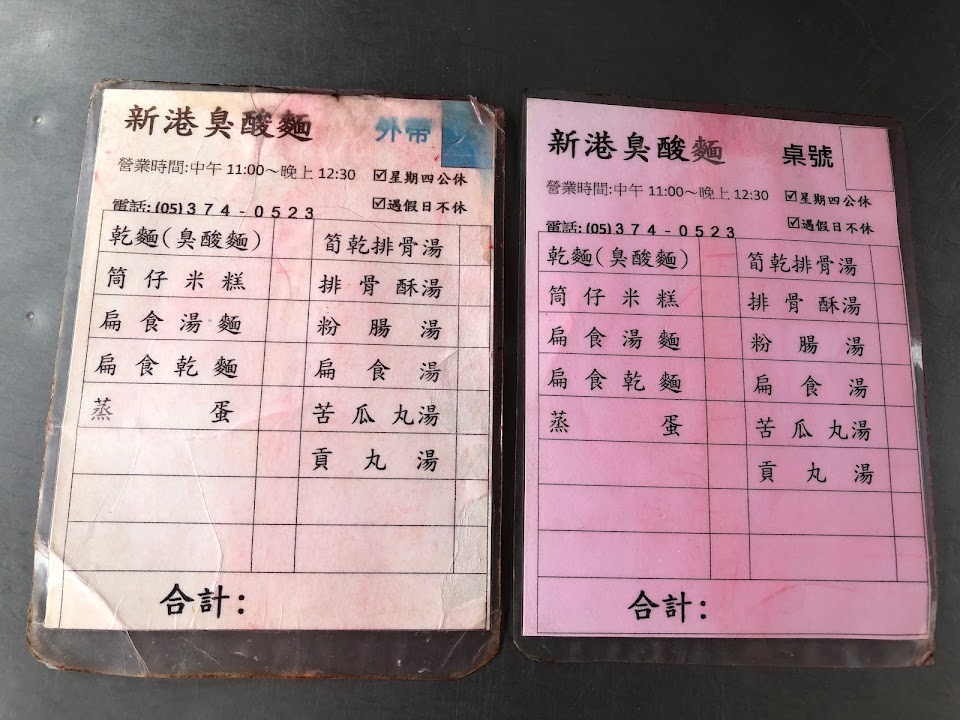 新港臭酸麵 外帶
營業時間:中午 11:00～晚上 12:30 ☑星期四公休
電話: (05)374-0523 ☑遇假日不休
乾麵(臭酸麵) 筍乾排骨湯
筒仔米糕 排骨酥湯
扁食湯麵 粉腸湯
扁食乾麵 扁食湯
蒸蛋 苦瓜丸湯
貢丸湯
合計:
新港臭酸麵 桌號
營業時間:中午 11:00～晚上 12:30 ☑星期四公休
電話: (05)374-0523 ☑遇假日不休
乾麵(臭酸麵) 筍乾排骨湯
筒仔米糕 排骨酥湯
扁食湯麵 粉腸湯
扁食乾麵 扁食湯
蒸蛋 苦瓜丸湯
貢丸湯
合計: